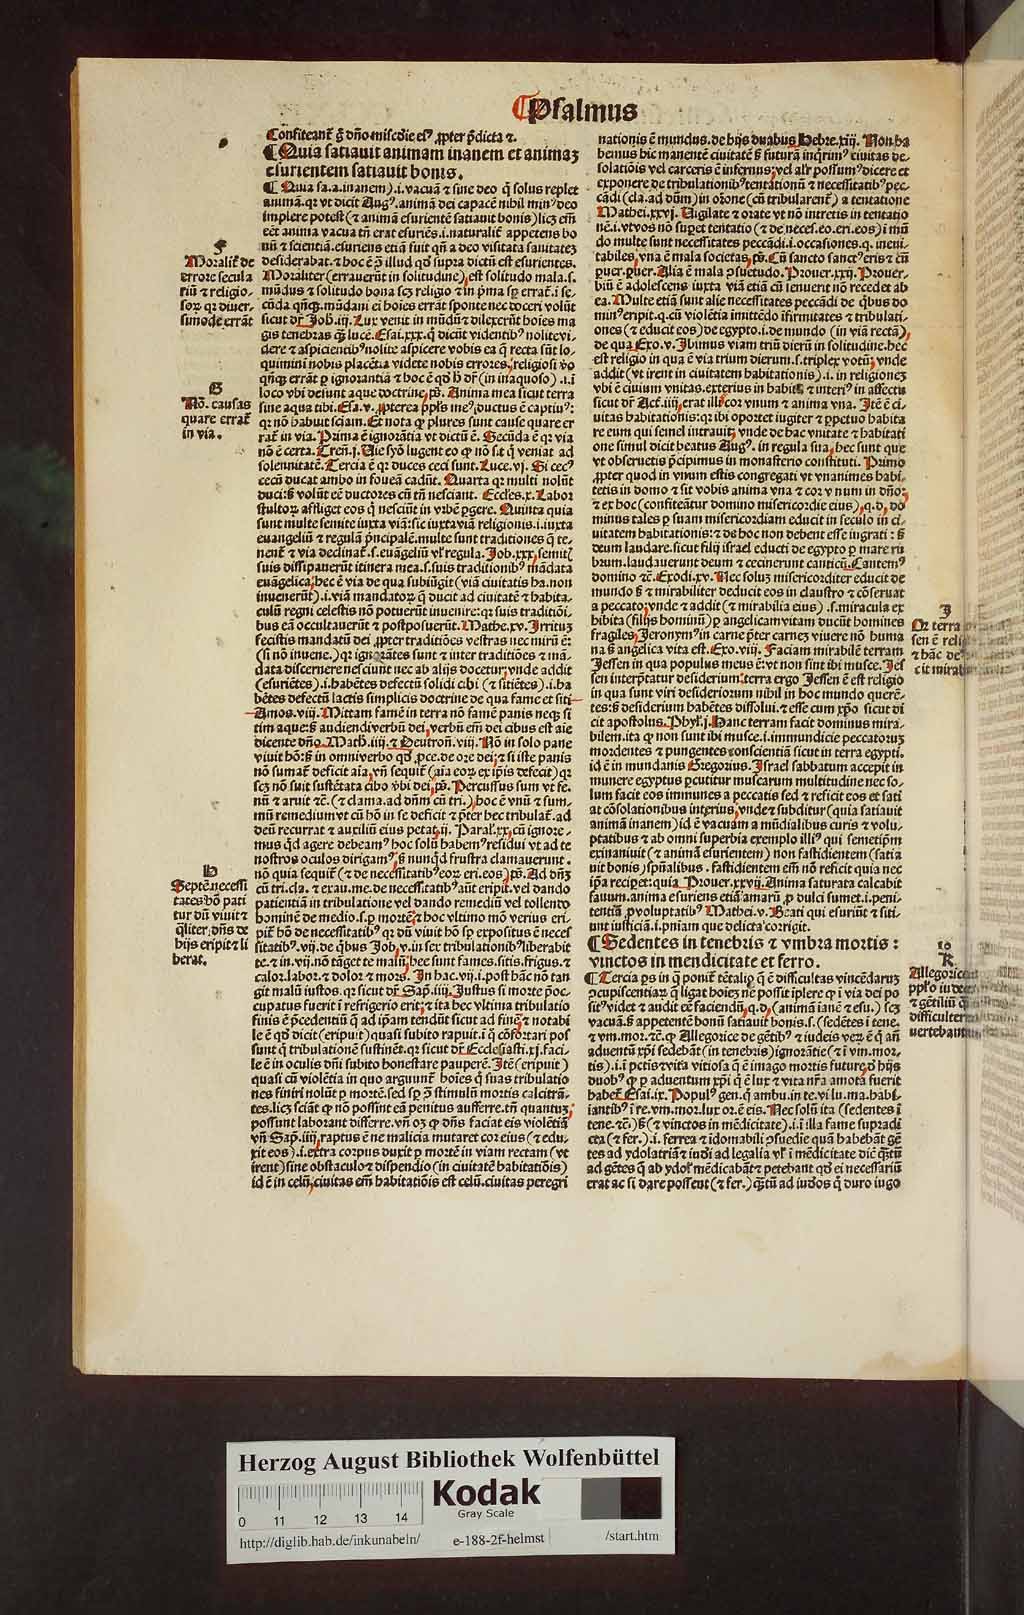 Psalmus
Confiteant᷑ g̃ dño miscd̄ie ei⁹ ꝓpter p̄dicta ⁊.
¶ Quia satiauit animam inanem et animaʒ
esurientem satiauit bonis.
¶ Quia sa.a.inanem).i.vacuā ⁊ sine deo q̄ solus replet
animā.qꝛ vt dicit Aug⁹.animā dei capacē nihil min⁹ deo
implere potest (⁊ animā esurientē satiauit bonis) licʒ em̄
eēt anima vacua tn̄ erat esuriēs.i.naturalit᷑ appetens bo
nū ⁊ scientiā.esuriens etiā fuit qn̄ a deo visitata sanitateʒ
desiderabat.⁊ hoc ē illud qd̓ supra dictū est esurientes.
Moraliter (errauerūt in solitudine), est solitudo mala.s.
mūdus ⁊ solitudo bona scʒ religio ⁊ in p̄ma sꝑ errat᷑.i se
cūda qn̄qꝫ.mūdani em̄ hoies errāt sponte nec doceri volūt
sicut dr̄ Joh.iij.Lux venit in mūdū ⁊ dilexerūt hoies ma
gis tenebras q̄ꝫ lucē.Esai.xxx.q̄ dicūt videntib⁹ nolite vi-
dere ⁊ aspicientib⁹ nolite aspicere vobis ea q̄ recta sūt lo-
quimini nobis placētia videte nobis errores, religiosi vo
qn̄qꝫ errāt ꝑ ignorantiā ⁊ hoc ē qd̓ h̓ dr̄ (in inaquoso) .i.ī
loco vbi desunt aque doctrine, ps̄. Anima mea sicut terra
sine aqua tibi. Esa.v. ꝓpterea ppl̄s me⁹ ductus ē captiu⁹:
qꝛ nō habuit sciam. Et nota ꝙ plures sunt cause quare er
rāt in via. Prima ē ignorātia vt dictū ē. Secūda ē qꝛ via
nō ē certa. Tren̄.j. Uie syō lugent eo ꝙ nō sit q̄ veniat ad
solennitatē. Tercia ē qꝛ duces ceci sunt. Luce.vj. Si cec⁹
cecū ducat ambo in foueā cadūt. Quarta qꝛ multi nolūt
duci: s̄ volūt eē ductores cū tn̄ nesciant. Eccles.x. Labor
stultoꝝ affliget eos q̄ nesciūt in vrbē ꝑgere. Quinta quia
sunt multe semite iuxta viā: sic iuxta viā religionis.i.iuxta
euangeliū ⁊ regulā p̄ncipalē.multe sunt traditiones q̄ te-
nent᷑ ⁊ via declinat᷑.s.euāgeliū vl̓ regula. Job.xxx, semitas
suis dissipauerūt itinera mea.s.suis traditionib⁹ mādata
euāgelica, hec ē via de qua subiūgit (viā ciuitatis ha.non
inuenerūt).i.viā mandatoꝝ q̄ ducit ad ciuitatē ⁊ habita.
culū regni celestis nō potuerūt inuenire: qꝛ suis traditiōi.
bus eā occultauerūt ⁊ postposuerūt. Mathe.xv. Irritum
fecistis mandatū dei ꝓpter traditiōes vestras nec mirū ē:
(si nō inuene.) qꝛ ignorātes sunt ⁊ inter traditiōes ⁊ mā-
data discernere nesciunt nec ab alijs docetur, vnde addit
(esuriētes).i.habētes defectū solidi cibi (⁊ sitiētes).i.ha
bētes defectū lactis simplicis doctrine de qua fame et siti
Amos.viij. Mittam famē in terra nō famē panis neqꝫ si
tim aque: s̄ audiendi verbū dei, verbū em̄ dei cibus est aīe
dicente dño. Math.iiij. ⁊ Deutron̄.viij. Nō in solo pane
viuit hō: s̄ in omni verbo qd̓ ꝓce.de ore dei, ⁊ si iste panis
nō sumat᷑ deficit aīa, vn̄ sequit᷑ (aīa eoꝝ ex ip̄is defecit) qꝛ
scʒ nō fuit sustētata cibo v̓bi dei, ps̄. Percussus sum vt fe.
nū ⁊ aruit ⁊c̄. (⁊ clama.ad dn̄m cū tri.), hoc ē vnū ⁊ sum.
mū remediū vt cū hō in se deficit ⁊ ꝓter hec tribulat᷑.ad
deū recurrat ⁊ auxiliū eius petat, ij. Paral̓.xx, cū ignore-
mus qd̓ agere debeam⁹ hoc solū habem⁹ residui vt ad te
nostros oculos dirigam⁹, s̄ nunqd̓ frustra clamauerunt.
nō quia sequit᷑ (⁊ de necessitatib⁹ eoꝝ eri.eos) ps̄. Ad dn̄ʒ
cū tri.cla.⁊ exau.me.de necessitatib⁹ aūt eripit.vel dando
patientiā in tribulatione vel dando remediū vel tollendo
hominē de medio.s.ꝑ mortē: ⁊ hoc vltimo mō verius eri-
pit᷑ hō de necessitatib⁹ qꝛ dū viuit hō sꝑ expositus ē neces
sitatib⁹.vij.de q̄bus Job, v.in sex tribulationib⁹ liberabit
te.⁊ in.vij.nō tāget te malū, hec sunt fames.sitis.frigus.⁊
calor.labor.⁊ dolor ⁊ mors. In hac.vij.i.post hāc nō tan
git malū iustos.qꝛ sicut dr̄ Sap.iiij. Justus si morte p̄oc.
cupatus fuerit ī refrigerio erit, ⁊ ita hec vltima tribulatio
finis ē p̄cedentiū q̄ ad ip̄am tendūt sicut ad finē, ⁊ notabi
le ē qd̓ dicit (eripuit) quasi subito rapuit.i q̄ cōfortari pos
sunt q̄ tribulationē sustinēt.qꝛ sicut dr̄ Ecclesiasti.xj.faci.
le ē in oculis dn̄i subito honestare pauperē. Itē (eripuit)
quasi cū violētia in quo arguunt᷑ hoies q̄ suas tribulatio
nes finiri nolūt ꝑ mortē.sed sꝑ ꝯ̄ stimulū mortis calcitrā-
tes.licʒ sciāt ꝙ nō possint eā penitus aufferre.tn̄ quantuʒ
possunt laborant differre.vn̄ oʒ ꝙ dn̄s faciat eis violētiā
vn̄ Sap.iiij, raptus ē ne malicia mutaret cor eius (⁊ edu-
xit eos).i.extra corpus duxit ꝑ mortē in viam rectam (vt
irent) sine obstaculo ⁊ dispendio (in ciuitatē habitatiōis)
id ē in celū, ciuitas em̄ habitatiōis est celū.ciuitas peregri
F
Moralit᷑ de
errore secula
riū ⁊ religio-
soꝝ qꝛ diuer.
simode errāt
G
Nō. causas
quare errat᷑
in via.
H
Septē necessi
tates hō pati
tur dū viuit ⁊
q̄liter dn̄s de
hijs eripit ⁊ li
berat.
nationis ē mundus.de hijs duabus Hebre.xiij. Non ha
bemus hic manentē ciuitatē s̄ futurā inq̄rim⁹ ciuitas de-
solatiōis vel carceris ē infernus, vel alr̄ possum⁹ dicere et
exponere de tribulationib⁹ tentationū ⁊ necessitatib⁹ pec-
cādi (cla.ad dn̄m) in or̄one (cū tribularent᷑) a tentatione
Mathei.xxvj. Uigilate ⁊ orate vt nō intretis in tentatio
nē.i.vt vos nō suꝑet tentatio (⁊ de neces.eo.eri.eos) ī mū
do multe sunt necessitates peccādi.i.occasiones.q. ineui-
tabiles, vna ē mala societas, ps̄. Cū sancto sanct⁹ eris ⁊ cū
ꝑuer.ꝑuer. Alia ē mala ꝯsuetudo. Prouer.xxij. Prouer.
biū ē adolescens iuxta viā etiā cū senuerit nō recedet ab
ea. Multe etiā sunt alie necessitates peccādi de q̄bus do
min⁹ eripit.q.cū violētia imittēdo īfirmitates ⁊ tribulati-
ones (⁊ educit eos) de egypto.i.de mundo (in viā rectā),
de qua Exo.v. Ibimus viam triū dierū in solitudine. hec
est religio in qua ē via trium dierum.s.triplex votū, vnde
addit (vt irent in ciuitatem habitationis).i.in religioneʒ
vbi ē ciuium vnitas.exterius in habitu ⁊ interi⁹ in affectu
sicut dr̄ Act᷑.iiij, erat illis cor vnum ⁊ anima vna. Itē ē ci-
uitas habitationis: qꝛ ibi oportet iugiter ⁊ ꝑpetuo habita
re eum qui semel intrauit, vnde de hac vnitate ⁊ habitati
one simul dicit beatus Aug⁹. in regula sua, hec sunt que
vt obseruetis p̄cipimus in monasterio constituti. Primo
ꝓpter quod in vnum estis congregati vt vnanimes habi-
tetis in domo ⁊ sit vobis anima vna ⁊ cor vnum in dn̄o,
⁊ ex hoc (confiteātur domino misericordie eius), q.d, do
minus tales ꝑ suam misericordiam educit in seculo in ci-
uitatem habitationis: ⁊ de hoc non debent esse ingrati: s̄
deum laudare.sicut filij israel educti de egypto ꝑ mare ru
brum.laudauerunt deum ⁊ cecinerunt canticū. Cantem⁹
domino ⁊c̄. Exodi.xv. Nec soluʒ misericorditer educit de
mundo s̄ ⁊ mirabiliter deducit eos in claustro ⁊ cōseruat
a peccato, vnde ⁊ addit (⁊ mirabilia eius) .s.miracula ex
hibita (filijs hominū) ꝑ angelicam vitam ducūt homines
fragiles, Jeronym⁹ in carne p̄ter carneʒ viuere nō huma
na s̄ angelica vita est. Exo.viij. Faciam mirabilē terram
Jessen in qua populus meus ē: vt non sint ibi musce. Jes
sen interp̄tatur desiderium: terra ergo Jessen ē est religio
in qua sunt viri desideriorum nihil in hoc mundo querē-
tes: s̄ desiderium habētes dissolui. ⁊ esse cum xp̄o sicut di
cit apostolus. Phyl̓.j. Hanc terram facit dominus mira-
bilem.ita ꝙ non sunt ibi musce.i.immundicie peccatoruʒ
mordentes ⁊ pungentes conscientiā sicut in terra egypti.
id ē in mundanis Gregorius. Israel sabbatum accepit in
munere egyptus ꝑcutitur muscarum multitudine nec so-
lum facit eos immunes a peccatis sed ⁊ reficit eos et sati
at cōsolationibus interius, vnde ⁊ subditur (quia satiauit
animā inanem) id ē vacuam a mūdialibus curis ⁊ volu.
ptatibus ⁊ ab omni superbia exemplo illi⁹ qui semetip̄m
exinaniuit (⁊ animā esurientem) non fastidientem (satia
uit bonis) spūalibus . fastidientem em̄ nō reficit quia nec
ip̄a recipet: quia Prouer.xxvij. Anima saturata calcabit
fauum.anima esuriens etiā amarū ꝓ dulci sumet.i.peni-
tentiā ꝓ voluptatib⁹ Mathei.v. Beati qui esuriūt ⁊ siti-
unt iusticiā.i.pniam que delicta corrigit.
¶ Sedentes in tenebris ⁊ vmbra mortis:
vinctos in mendicitate et ferro.
¶ Tercia ꝑs in q̄ ponit᷑ tētatio q̄ ē difficultas vincēdaruʒ
ꝯcupiscentiaꝝ q̄ ligat hoieʒ ne possit īplere ꝙ i via dei po
sit⁹ videt ⁊ audit eē faciendū, q.d, (animā īanē ⁊ esu.) scʒ
vacuā.s̄ appetentē bonū satiauit bonis.s.(sedētes i tene.
⁊ vm.mor.⁊c̄.ꝙ Allegorice de gētib⁹ ⁊ iudeis veꝝ ē q̄ an̄
aduentū xp̄i sedebāt (in tenebris) ignorātie (⁊ ī vm.mor-
tis).i.ī pctis ⁊ vita vitiosa q̄ ē imago mortis future, d̓ hijs
duob⁹ q̄ ꝑ aduentum xp̄i q̄ ē lux ⁊ vita nr̄a amota fuerit
habet᷑ Esai.ix. Popul⁹ gen.q̄ ambu.in te.vi lu.ma.habi-
tantib⁹ i re.vm.mor.lux or.ē eis. Nec solū ita (sedentes ī
tene.⁊c̄.) s̄ (⁊ vinctos in mēdicitate).i.ī illa fame supradi
cta (⁊ fer.).i. ferrea ⁊ idomabili ꝯsuedie quā habebāt gē
tes ad ydolatriā ⁊ iudi ad legalia vl̓ i mēdicitate dic̄ q̄ꝫtū
ad gētes q̄ ab ydol̓ mēdicabāt ⁊ petebant qd̓ ei necessariū
erat ac si dare possent (⁊ fer.) q̄ꝫtū ad iudos q̄ duro iugo
J
K